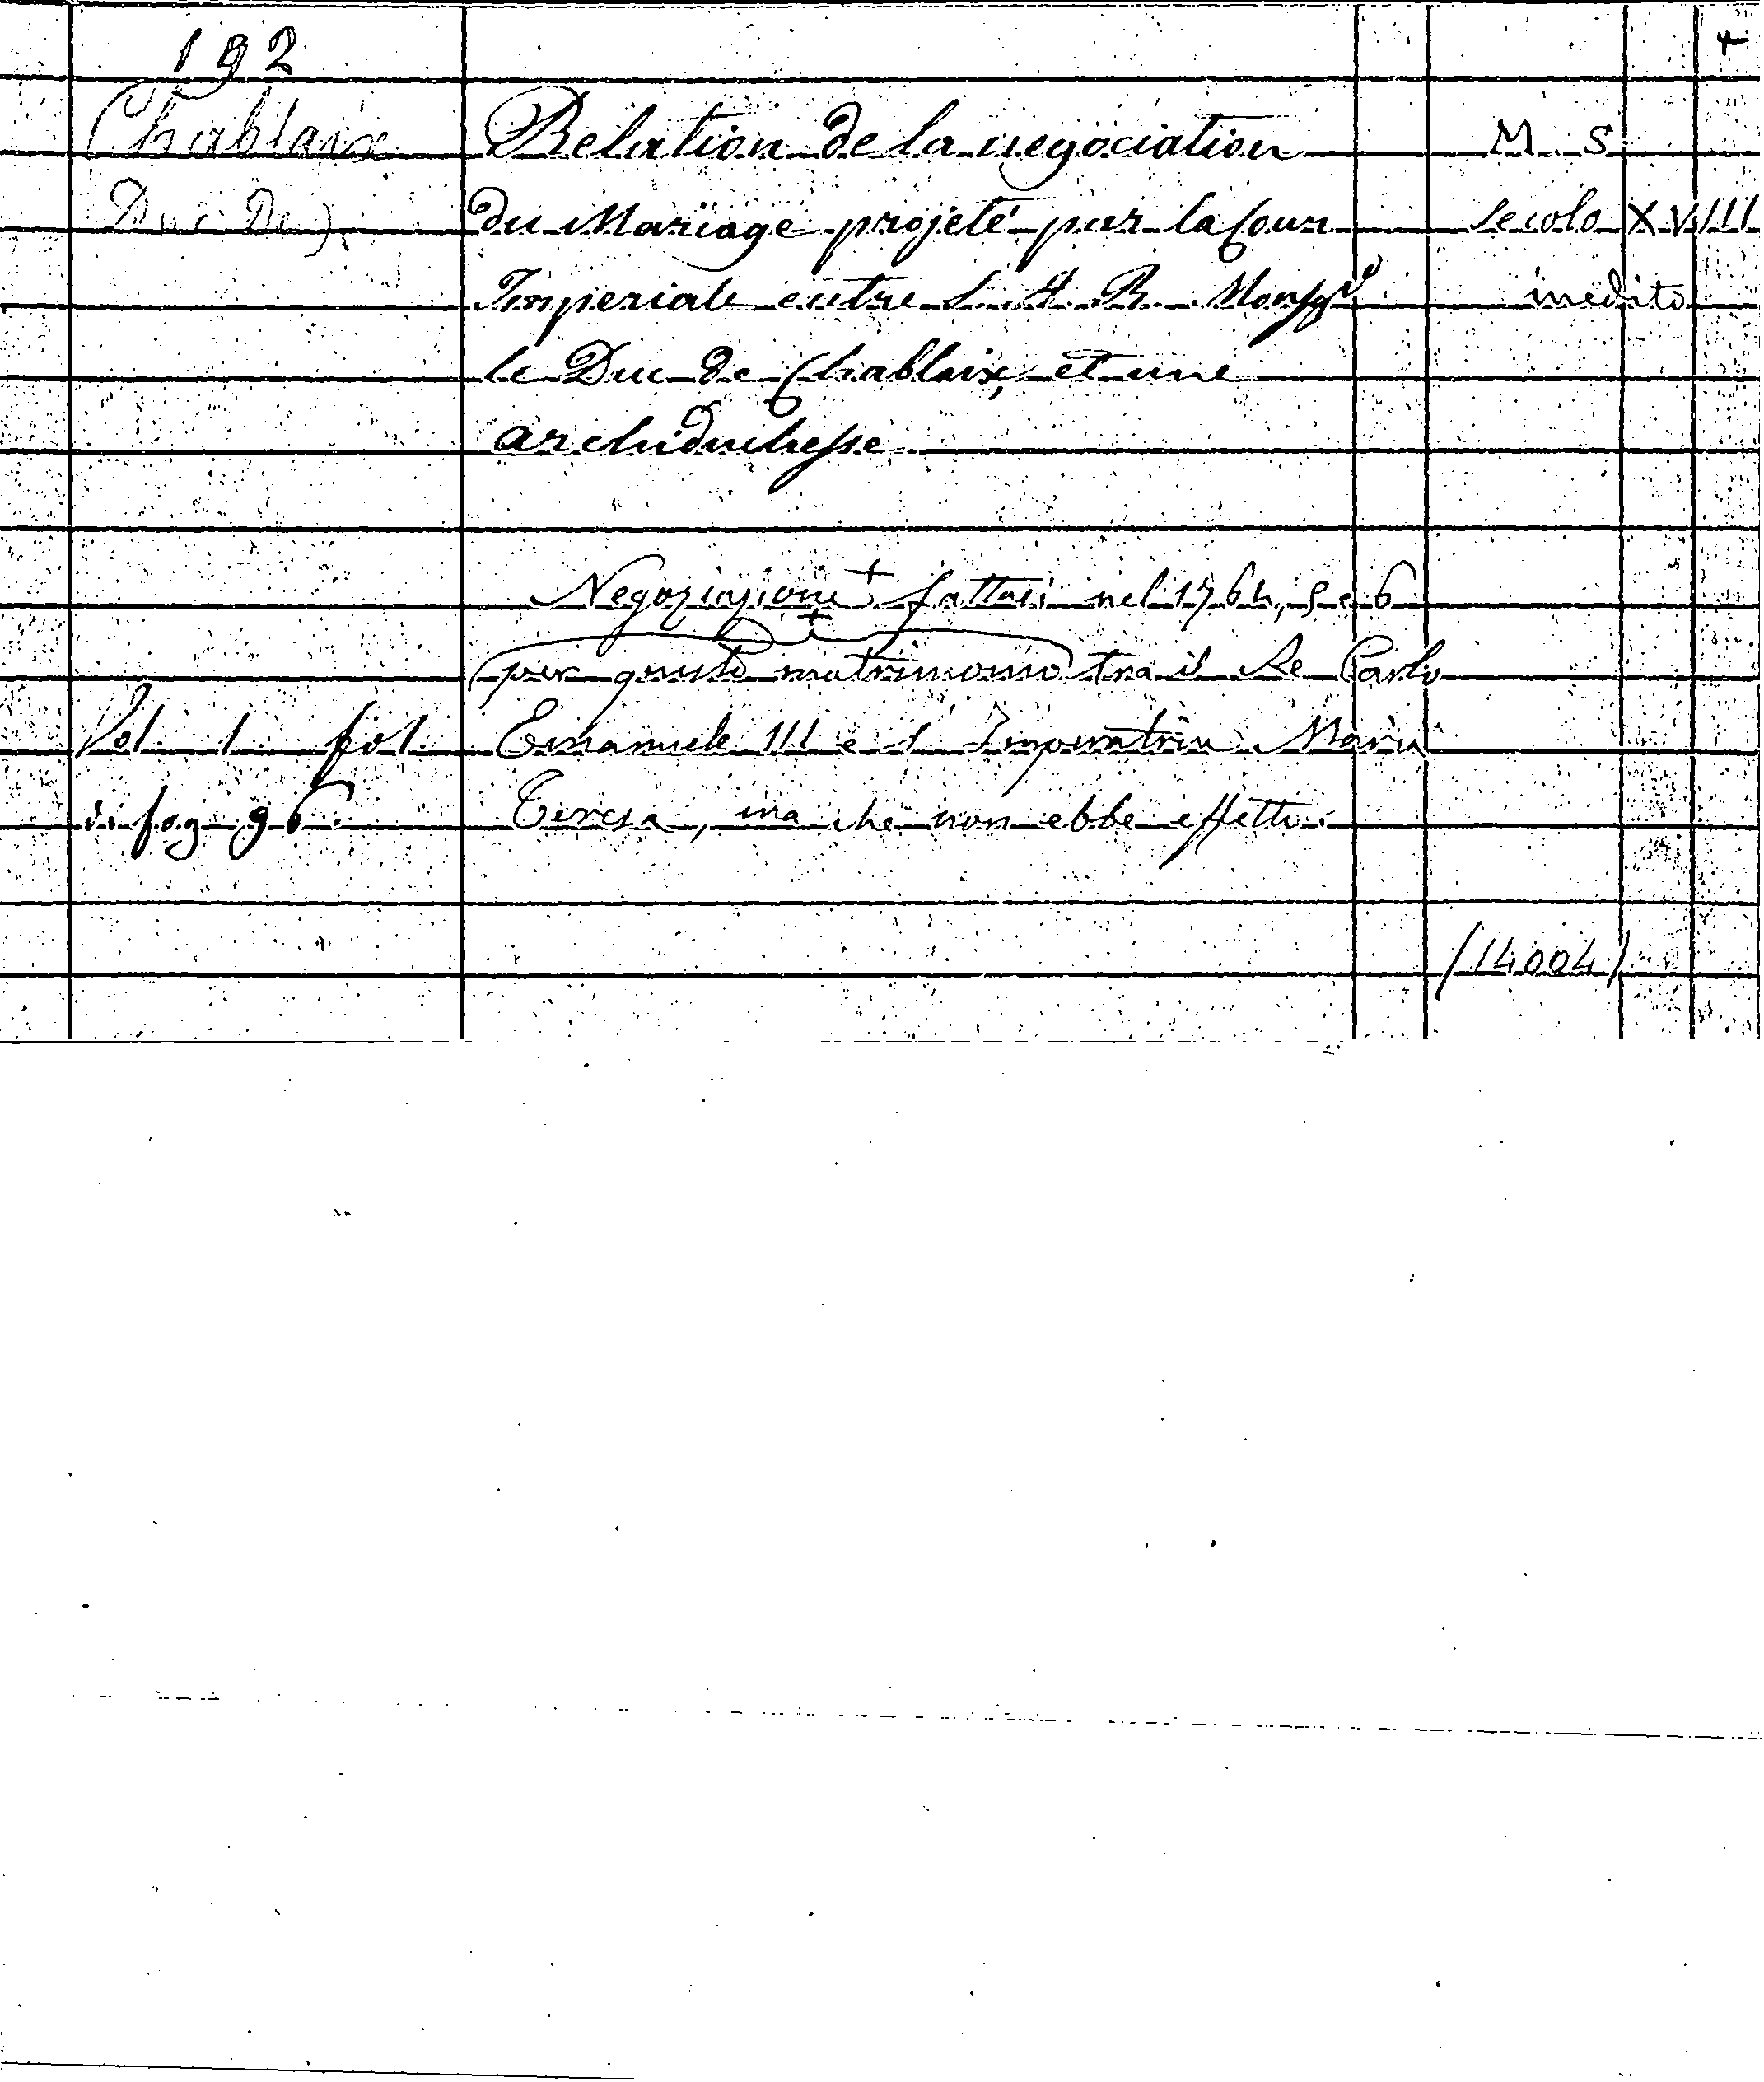 192
Chablaix
Duc De)
Relation de la negociation
du Mariage projeté par la Cour
Imperiale entre S. A. R. Monsgr
le Duc de Chablaix, et une
archiduchesse
M. S.
secolo XVIII
inedito
Negoziazione + fattasi nel 1764, 5 e 6
(per questo matrimonio) tra il Re Carlo
Emanuele III e l'Imperatrice Maria
Teresa, ma che non ebbe effetto.
Vol. 1. fol.
di fog 96.
(14004)